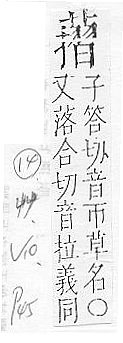 子答切音帀草名○
又落合切音拉義同
⑭
V10、
P45